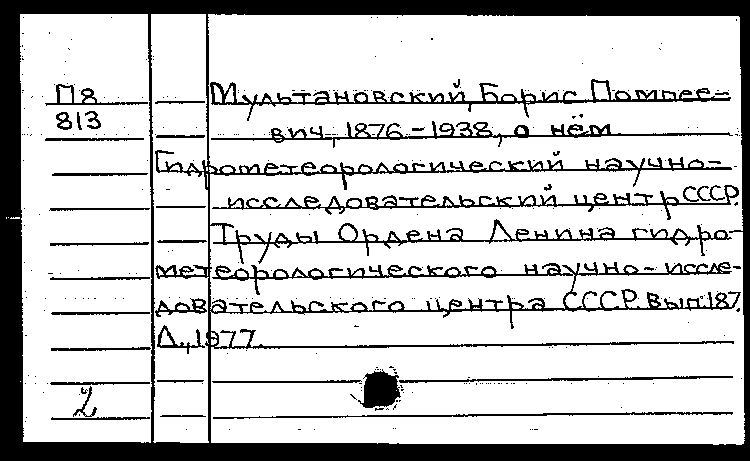 П8 Мультановский, Борис Помпее-
813 вич, 1876-1938, о нём.
Гидрометеорологический научно-
исследовательский центр СССР.
Труды Ордена Ленина гидро-
метеорологического научно-иссле-
довательского центра СССР. Вып.187.
Л., 1977.
2